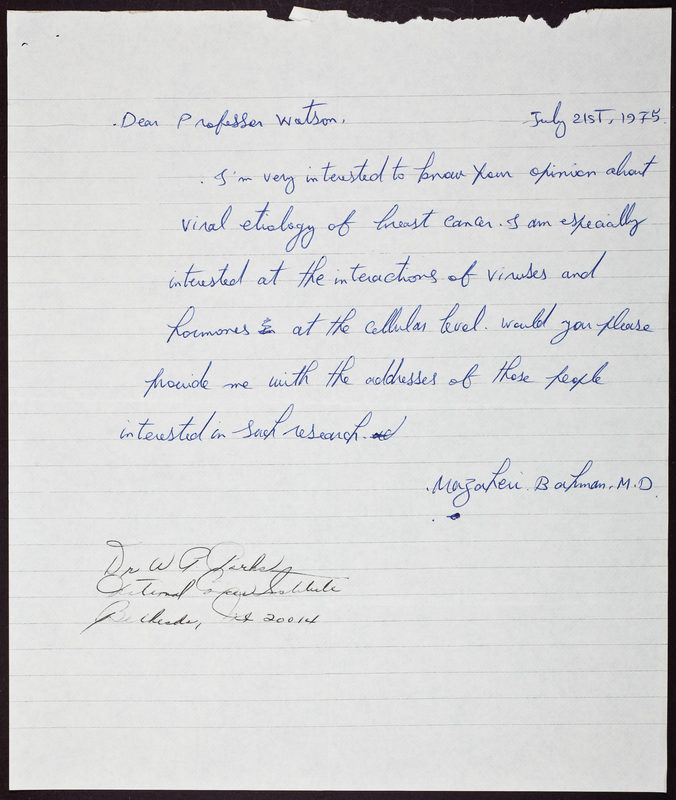 Dear Professor Watson. July 21ST, 1975.
I'm very interested to know your opinion about
viral etiology of breast cancer. I am especially
interested at the interactions of viruses and
hormones at the cellular level. Would you please
provide me with the addresses of those people
interested in such research.
Mazaheri. Bahman. M.D.
Dr W P Parks
National Cancer Institute
Bethesda, Md 20014